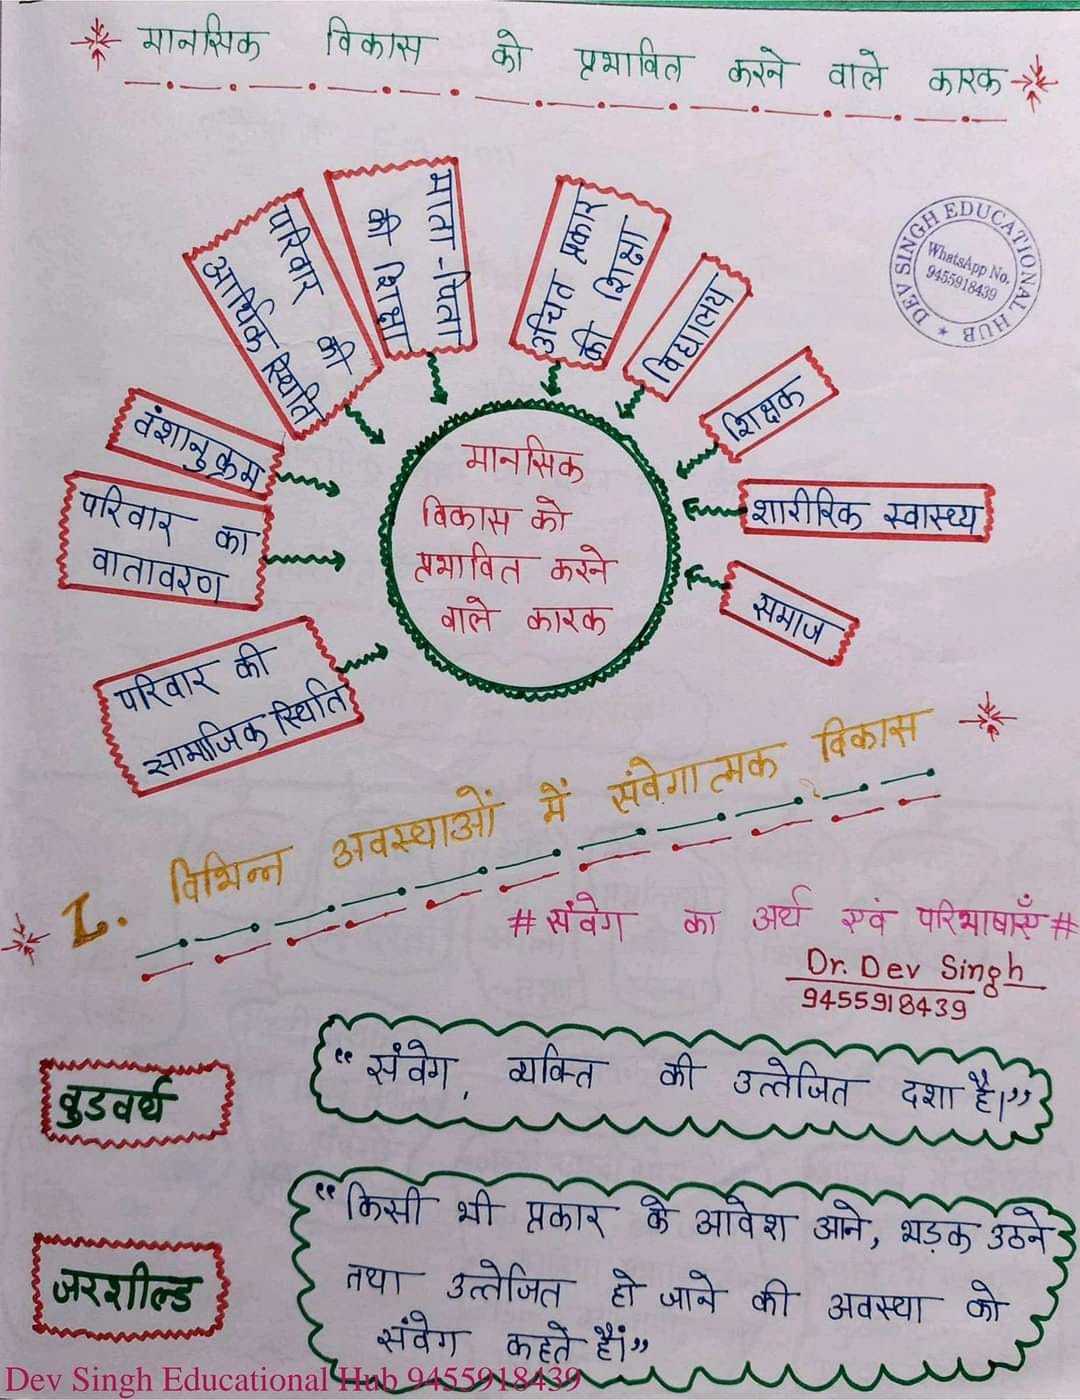 मानसिक विकास को प्रभावित करने वाले कारक
DEV SINGH EDUCATIONAL HUB
WhatsApp No.
9455918439
माता-पिता
की शिक्षा
परिवार की
आर्थिक स्थिति
उचित प्रकार
की शिक्षा
विद्यालय
शिक्षक
वंशानुक्रम
शारीरिक स्वास्थ्य
परिवार का
वातावरण
समाज
परिवार की
सामाजिक स्थिति
मानसिक
विकास को
प्रभावित करने
वाले कारक
I. विभिन्न अवस्थाओं में संवेगात्मक विकास
# संवेग का अर्थ एवं परिभाषाएँ #
Dr. Dev Singh
9455918439
वुडवर्थ
“संवेग, व्यक्ति की उत्तेजित दशा है।”
जरशील्ड
“किसी भी प्रकार के आवेश आने, भड़क उठने
तथा उत्तेजित हो जाने की अवस्था को
संवेग कहते हैं”
Dev Singh Educational Hub 9455918439